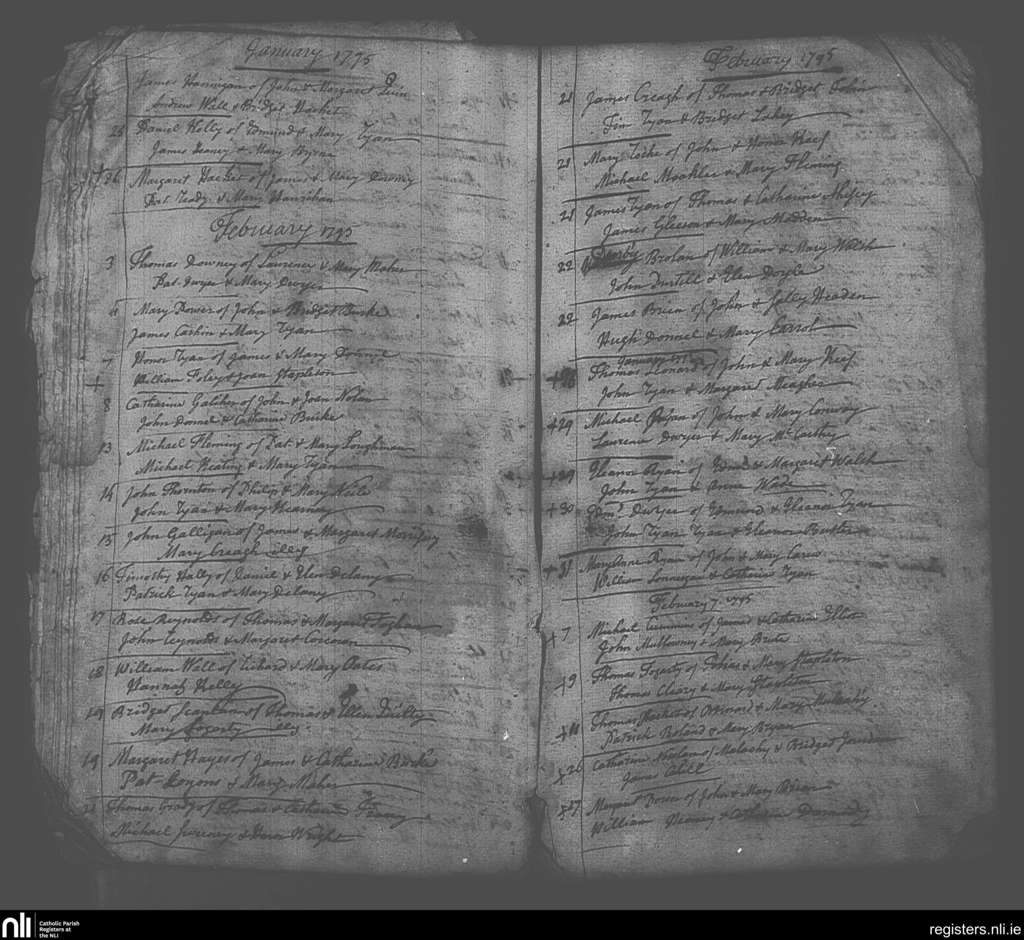 January 1795
James Hannigan of John & Margaret Quin
Andrew Wall & Bridget Hacket
25 Daniel Kelly of Edmund & Mary Ryan
James Heaney & Mary Byrne
+ 26 Margaret Hacket of James & Mary
Pat. Ready & Mary Hanrahan
February 1795
3 Thomas Downey of Laurence & Mary Maher
Pat. Dwyer & Mary Dwyer
4 Mary Power of John & Bridget Burke
James Carkin & Mary Ryan
7 Honor Ryan of James & Mary
+ William Foley & Joan Stapleton
8 Catharine Galiher of John & Joan Nolan
John Donnel & Catharine Burke
13 Michael Fleming of Pat. & Mary Loughman
Michael Keating & Mary Ryan
14 John Thornton of Philip & Mary Neile
John Ryan & Mary Kearney
15 John Galligan of James & Margaret Morrissy
Mary Creagh only
16 Timothy Hally of Daniel & Elen Delany
Patrick Ryan & Mary Delany
17 Rose Reynolds of Thomas & Margaret
John Reynolds & Margaret Corcoran
18 William Wall of Richard & Mary Oakes
Hannah Kelly
19 Bridget of Thomas & Ellen Quilty
Mary Fogerty only
19 Margaret Hayes of James & Catharine Burke
Pat. Lyons & Mary Maher
Thomas Grady of Thomas & Catharine
Michael Sweeney & Honor Wright
February 1795
21 James Creagh of Thomas & Bridget Tobin
Tim Ryan & Bridget Lahey
21 Mary Locke of John & Honor Keef
Michael Mockler & Mary Fleming
21 James Ryan of Thomas & Catharine
James Gleeson & Mary Madden
22 Darby Brohan of William & Mary Walsh
John & Elen Doyle
22 James Brien of John & Sally Headen
Hugh Donnel & Mary Carrol
January 1795
+ Thomas Leonard of John & Mary Keef
John Ryan & Margaret Meagher
+ 29 Michael Ryan of John & Mary Conway
Laurence Dwyer & Mary McCarthy
+ 29 Eleanor Ryan of Edmd. & Margaret Walsh
John Ryan & Anne Wade
+ 30 Dwyer of Edmund & Eleanor Ryan
John Ryan Ryan & Eleanor Butler
+ 31 MaryAnne Ryan of John & Mary Carew
William Lonnegan & Catharine Ryan
February 1795
+ 7 Michael Timmins of James & Catharine Elliot
John Mullowny & Mary
+ 9 Thomas Fogarty of Tobias & Mary Stapleton
Thomas Cleary & Mary Stapleton
+ 11 Thomas Hacket of Bernard & Mary
Patrick Boland & Mary Bryan
26 Catharine of Malachy & Bridget
James Cahill
27 Margaret Power of John & Mary
William & Catharine
nli
Catholic Parish
Registers at
the NLI
registers.nli.ie